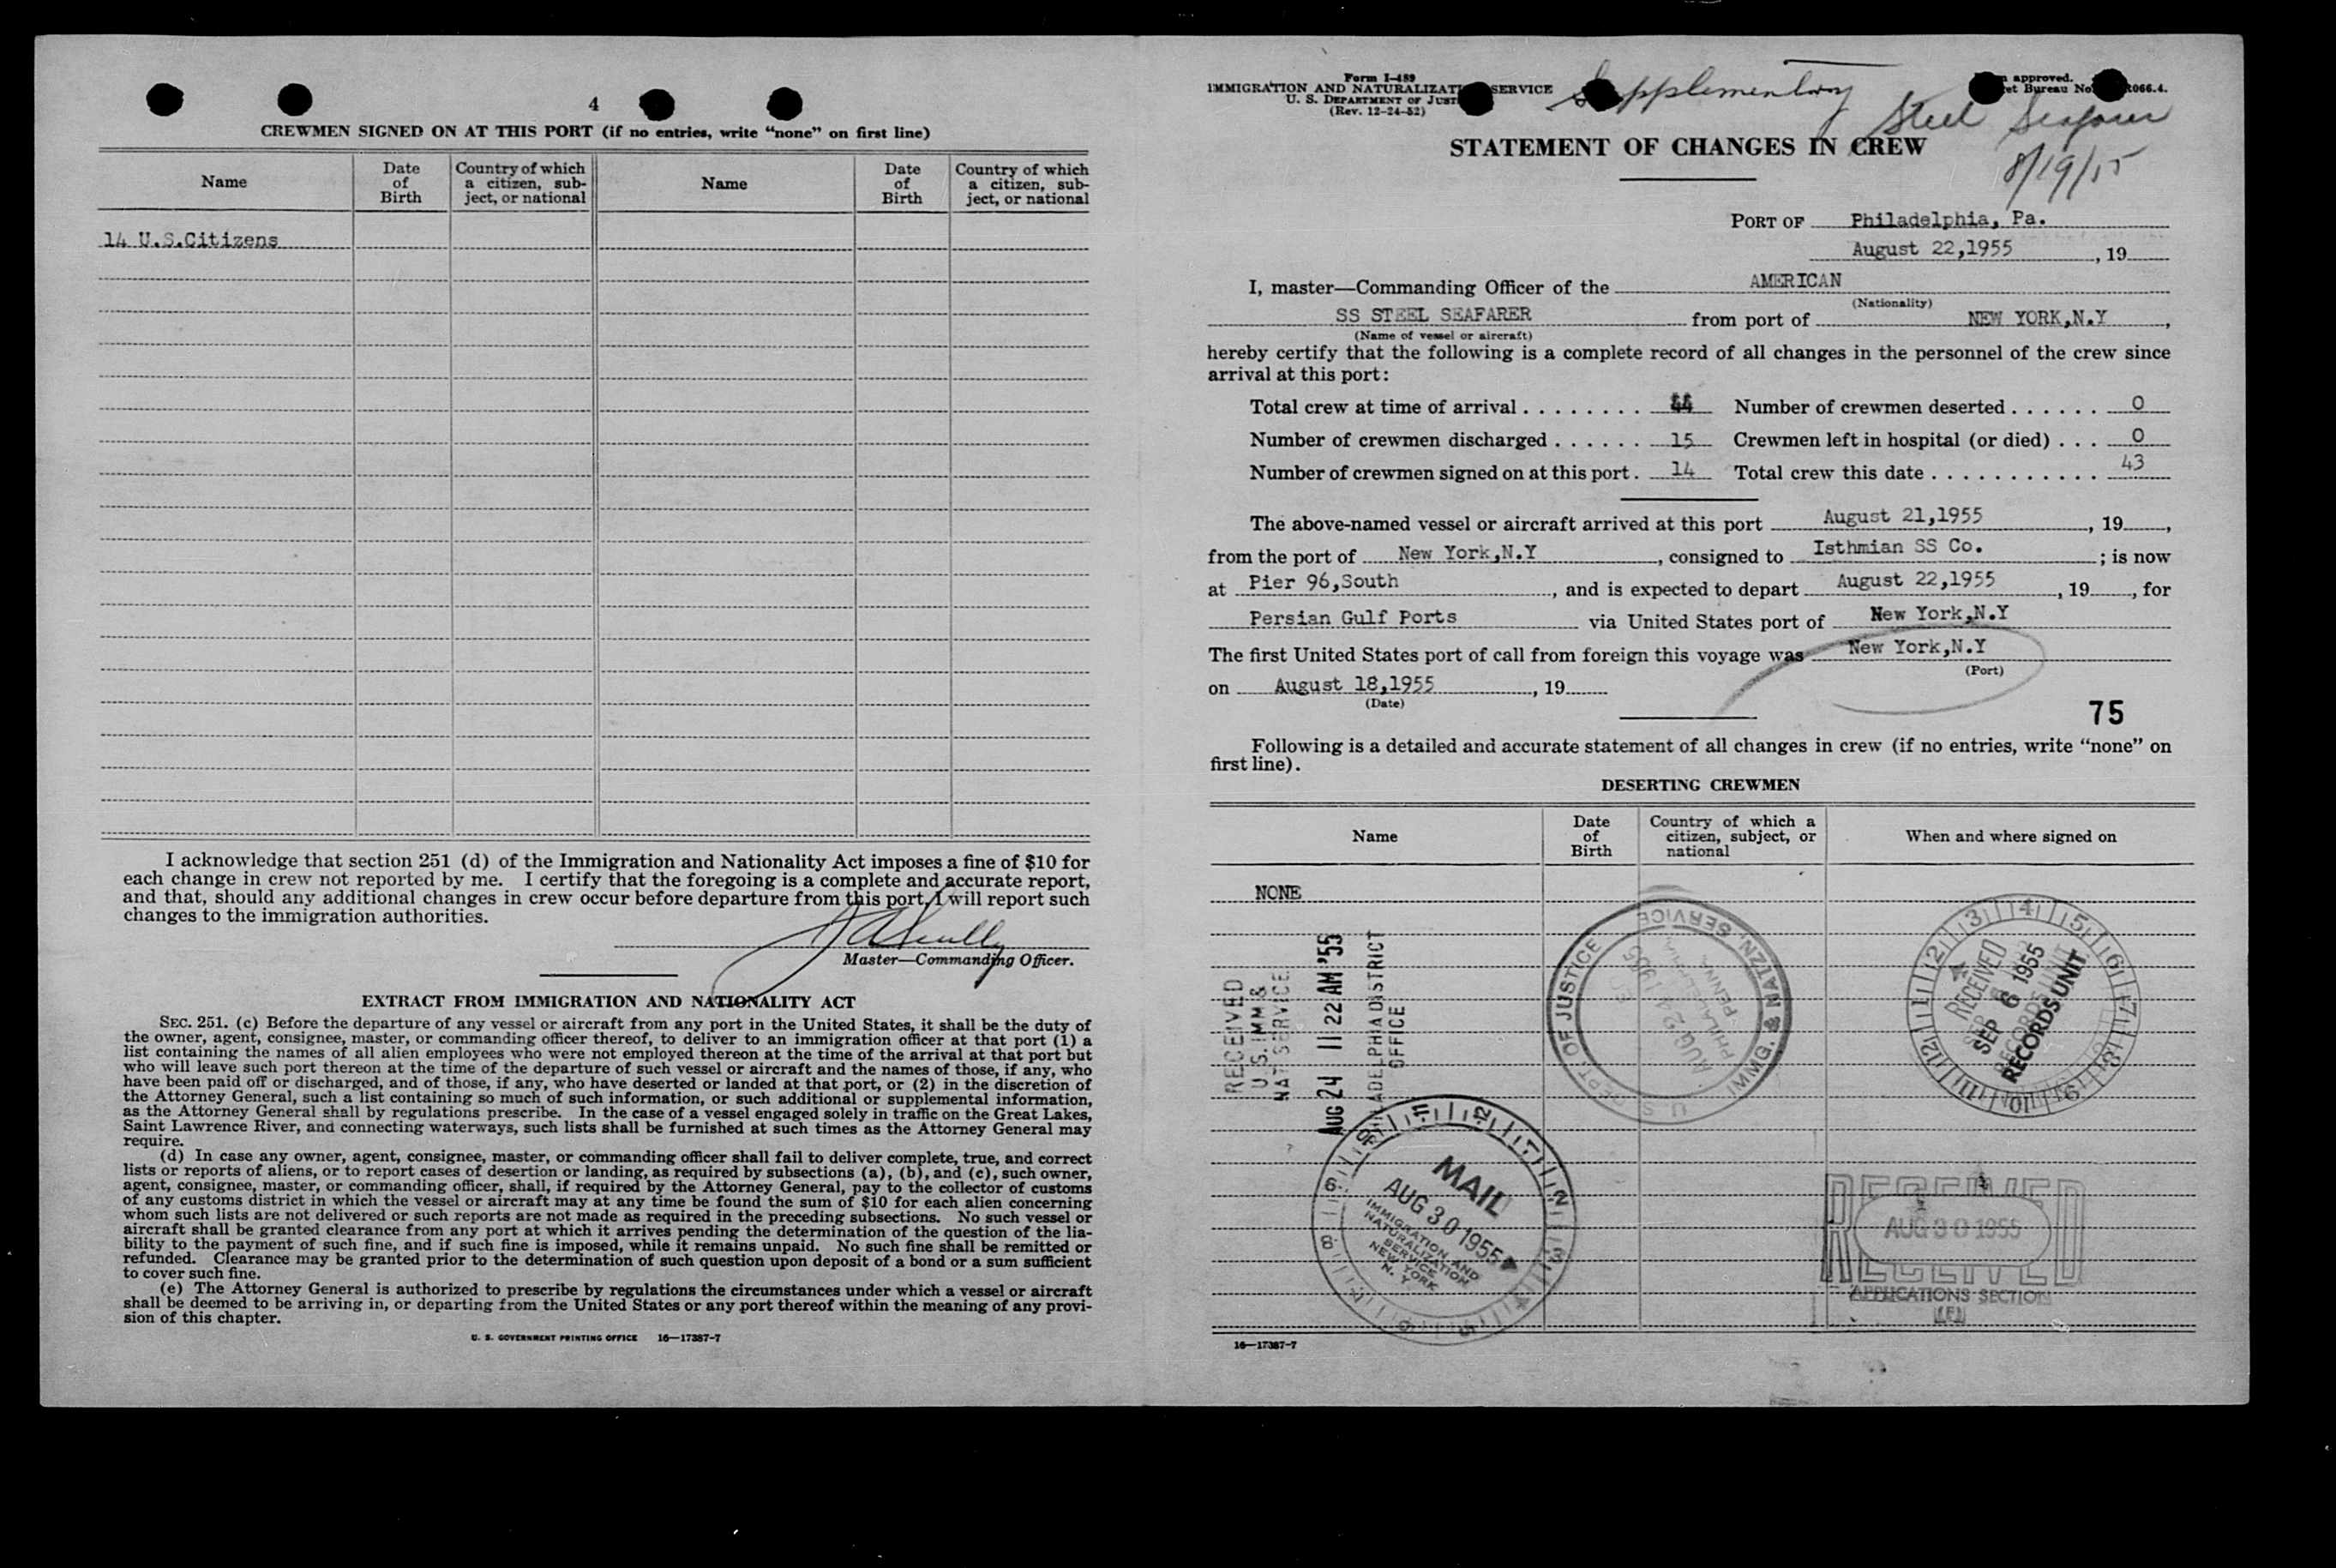 4
CREWMEN SIGNED ON AT THIS PORT (if no entries, write “none” on first line)
Name
Date of Birth
Country of which a citizen, sub-ject, or national
Name
Date of Birth
Country of which a citizen, sub-ject, or national
14 U.S.Citizens
I acknowledge that section 251 (d) of the Immigration and Nationality Act imposes a fine of $10 for
each change in crew not reported by me. I certify that the foregoing is a complete and accurate report,
and that, should any additional changes in crew occur before departure from this port, I will report such
changes to the immigration authorities.
Master—Commanding Officer.
EXTRACT FROM IMMIGRATION AND NATIONALITY ACT
SEC. 251. (c) Before the departure of any vessel or aircraft from any port in the United States, it shall be the duty of
the owner, agent, consignee, master, or commanding officer thereof, to deliver to an immigration officer at that port (1) a
list containing the names of all alien employees who were not employed thereon at the time of the arrival at that port but
who will leave such port thereon at the time of the departure of such vessel or aircraft and the names of those, if any, who
have been paid off or discharged, and of those, if any, who have deserted or landed at that port, or (2) in the discretion of
the Attorney General, such a list containing so much of such information, or such additional or supplemental information,
as the Attorney General shall by regulations prescribe. In the case of a vessel engaged solely in traffic on the Great Lakes,
Saint Lawrence River, and connecting waterways, such lists shall be furnished at such times as the Attorney General may
require.
(d) In case any owner, agent, consignee, master, or commanding officer shall fail to deliver complete, true, and correct
lists or reports of aliens, or to report cases of desertion or landing, as required by subsections (a), (b), and (c), such owner,
agent, consignee, master, or commanding officer, shall, if required by the Attorney General, pay to the collector of customs
of any customs district in which the vessel or aircraft may at any time be found the sum of $10 for each alien concerning
whom such lists are not delivered or such reports are not made as required in the preceding subsections. No such vessel or
aircraft shall be granted clearance from any port at which it arrives pending the determination of the question of the lia-
bility to the payment of such fine, and if such fine is imposed, while it remains unpaid. No such fine shall be remitted or
refunded. Clearance may be granted prior to the determination of such question upon deposit of a bond or a sum sufficient
to cover such fine.
(e) The Attorney General is authorized to prescribe by regulations the circumstances under which a vessel or aircraft
shall be deemed to be arriving in, or departing from the United States or any port thereof within the meaning of any provi-
sion of this chapter.
U. S. GOVERNMENT PRINTING OFFICE 16—17387-7
Form I-489
IMMIGRATION AND NATURALIZATI SERVICE
U. S. DEPARTMENT OF JUST
(Rev. 12-24-52)
Supplementary
approved.
et Bureau No. 066.4.
Steel Seafarer
8/19/55
STATEMENT OF CHANGES IN CREW
PORT OF Philadelphia, Pa.
August 22,1955, 19
I, master—Commanding Officer of the AMERICAN
(Nationality)
SS STEEL SEAFARER from port of NEW YORK,N.Y,
(Name of vessel or aircraft)
hereby certify that the following is a complete record of all changes in the personnel of the crew since
arrival at this port:
Total crew at time of arrival 44 Number of crewmen deserted 0
Number of crewmen discharged 15 Crewmen left in hospital (or died) 0
Number of crewmen signed on at this port 14 Total crew this date 43
The above-named vessel or aircraft arrived at this port August 21,1955, 19,
from the port of New York,N.Y, consigned to Isthmian SS Co.; is now
at Pier 96,South, and is expected to depart August 22,1955, 19, for
Persian Gulf Ports via United States port of New York,N.Y
The first United States port of call from foreign this voyage was New York,N.Y
(Port)
on August 18,1955, 19
(Date)
75
Following is a detailed and accurate statement of all changes in crew (if no entries, write “none” on
first line).
DESERTING CREWMEN
Name
Date of Birth
Country of which a citizen, subject, or national
When and where signed on
NONE
RECEIVED
U.S. IMM &
NAT SERVICE
AUG 24 11 22 AM '55
PHILADELPHIA DISTRICT
OFFICE
U S DEPT OF JUSTICE
IMMG. & NATZN. SERVICE
AUG 24 1955
PHILADELPHIA
PENNA.
RECEIVED
SEP 6 1955
RECORDS UNIT
MAIL
AUG 30 1955
IMMIGRATION AND
NATURALIZATION
SERVICE
NEW YORK
N. Y.
RECEIVED
AUG 30 1955
APPLICATIONS SECTION
16—17387-7